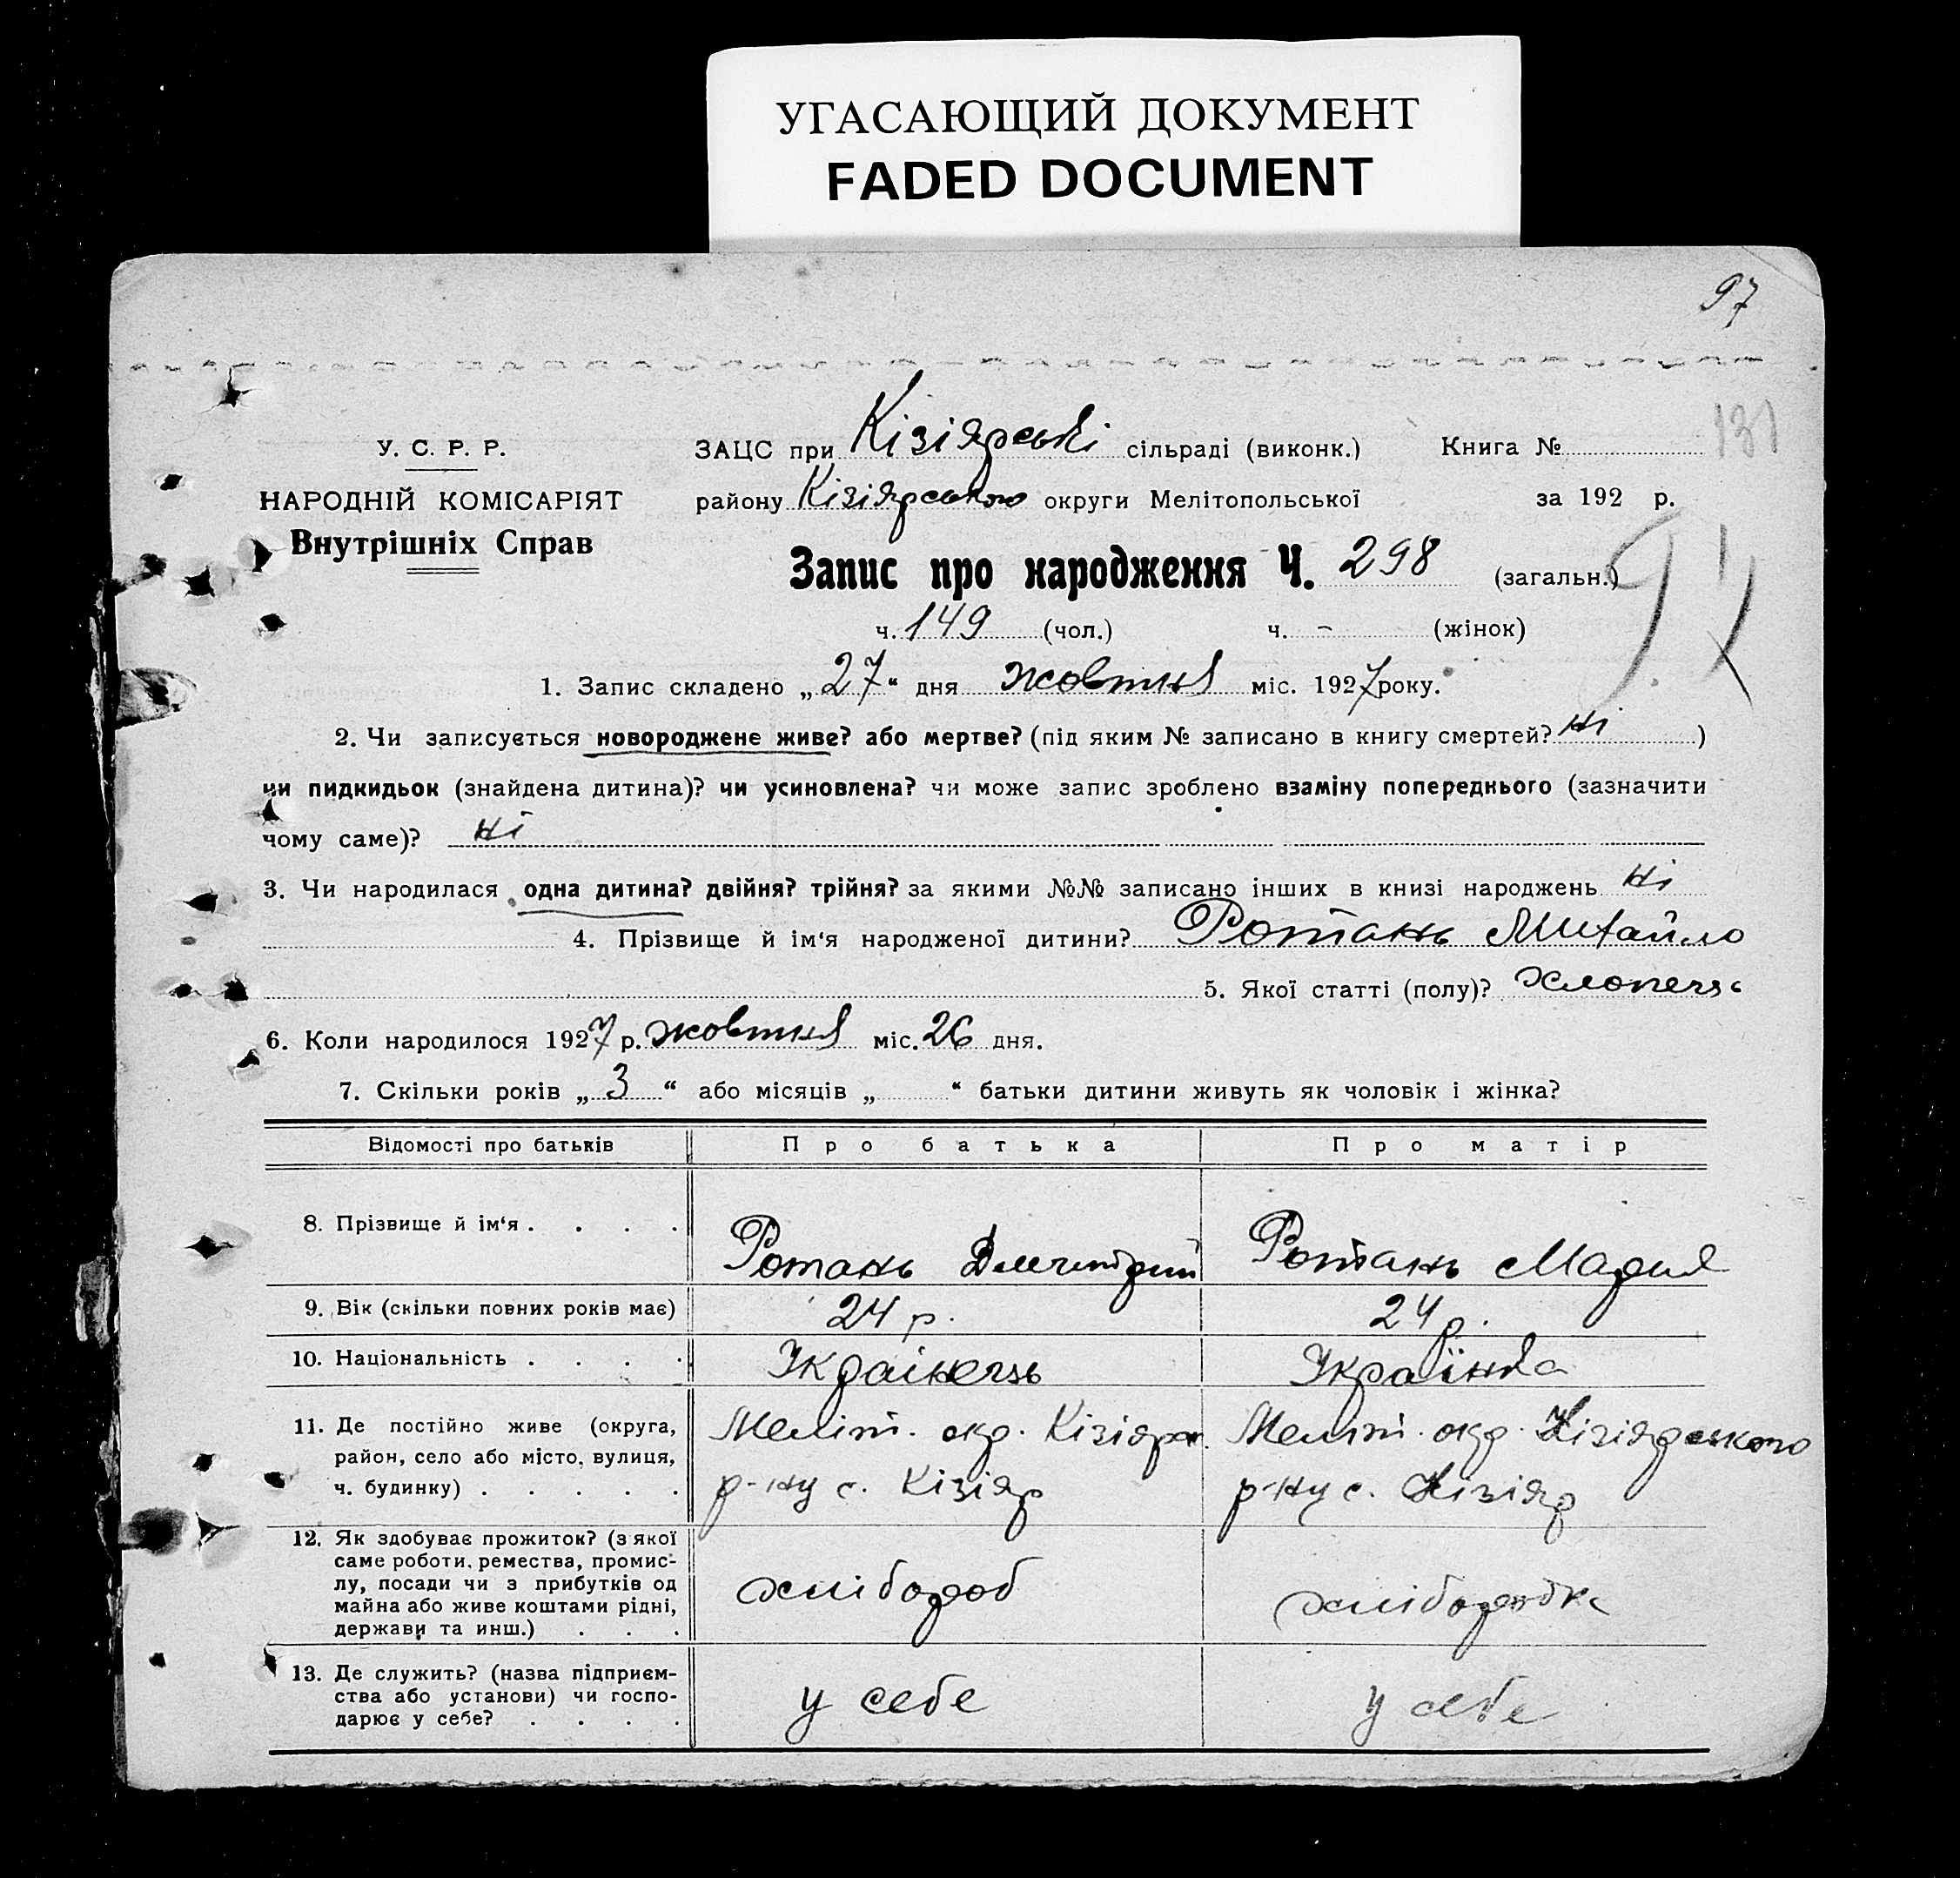 УГАСАЮЩИЙ ДОКУМЕНТ
FADED DOCUMENT
97
131
У. С. Р. Р.
НАРОДНІЙ КОМІСАРІЯТ
Внутрішніх Справ
ЗАЦС при Кізіярські сільраді (виконк.) Книга №
району Кізіярського округи Мелітопольської за 192 р.
Запис про народження Ч. 298 (загальн.)
ч. 149 (чол.) ч. - (жінок)
1. Запис складено „27“ дня жовтня міс. 1927 року.
2. Чи записується новороджене живе? або мертве? (під яким № записано в книгу смертей? Ні )
чи пидкидьок (знайдена дитина)? чи усиновлена? чи може запис зроблено взаміну попереднього (зазначити
чому саме)? Ні
3. Чи народилася одна дитина? двійня? трійня? за якими №№ записано інших в книзі народжень Ні
4. Прізвище й ім‘я народженої дитини? Ротань Михайло
5. Якої статті (полу)? Хлопець
6. Коли народилося 1927 р. жовтня міс. 26 дня.
7. Скільки років „3“ або місяців „ “ батьки дитини живуть як чоловік і жінка?
Відомості про батьків Про батька Про матір
8. Прізвище й ім‘я . . . . Ротань Дмитрий Ротань Мария
9. Вік (скільки повних років має) 24 р. 24 р.
10. Національність . . . . Українець Українка
11. Де постійно живе (округа, Меліт. окр. Кізіяр. Меліт. окр. Кізіярського
район, село або місто, вулиця, р-ну с. Кізіяр р-ну с. Кізіяр
ч. будинку) . . . . .
12. Як здобуває прожиток? (з якої
саме роботи, ремества, промис-
лу, посади чи з прибутків од хлібороб хліборобка
майна або живе коштами рідні,
держави та инш.) . . .
13. Де служить? (назва підприєм-
ства або установи) чи госпо- у себе у себе
дарює у себе? . . . .